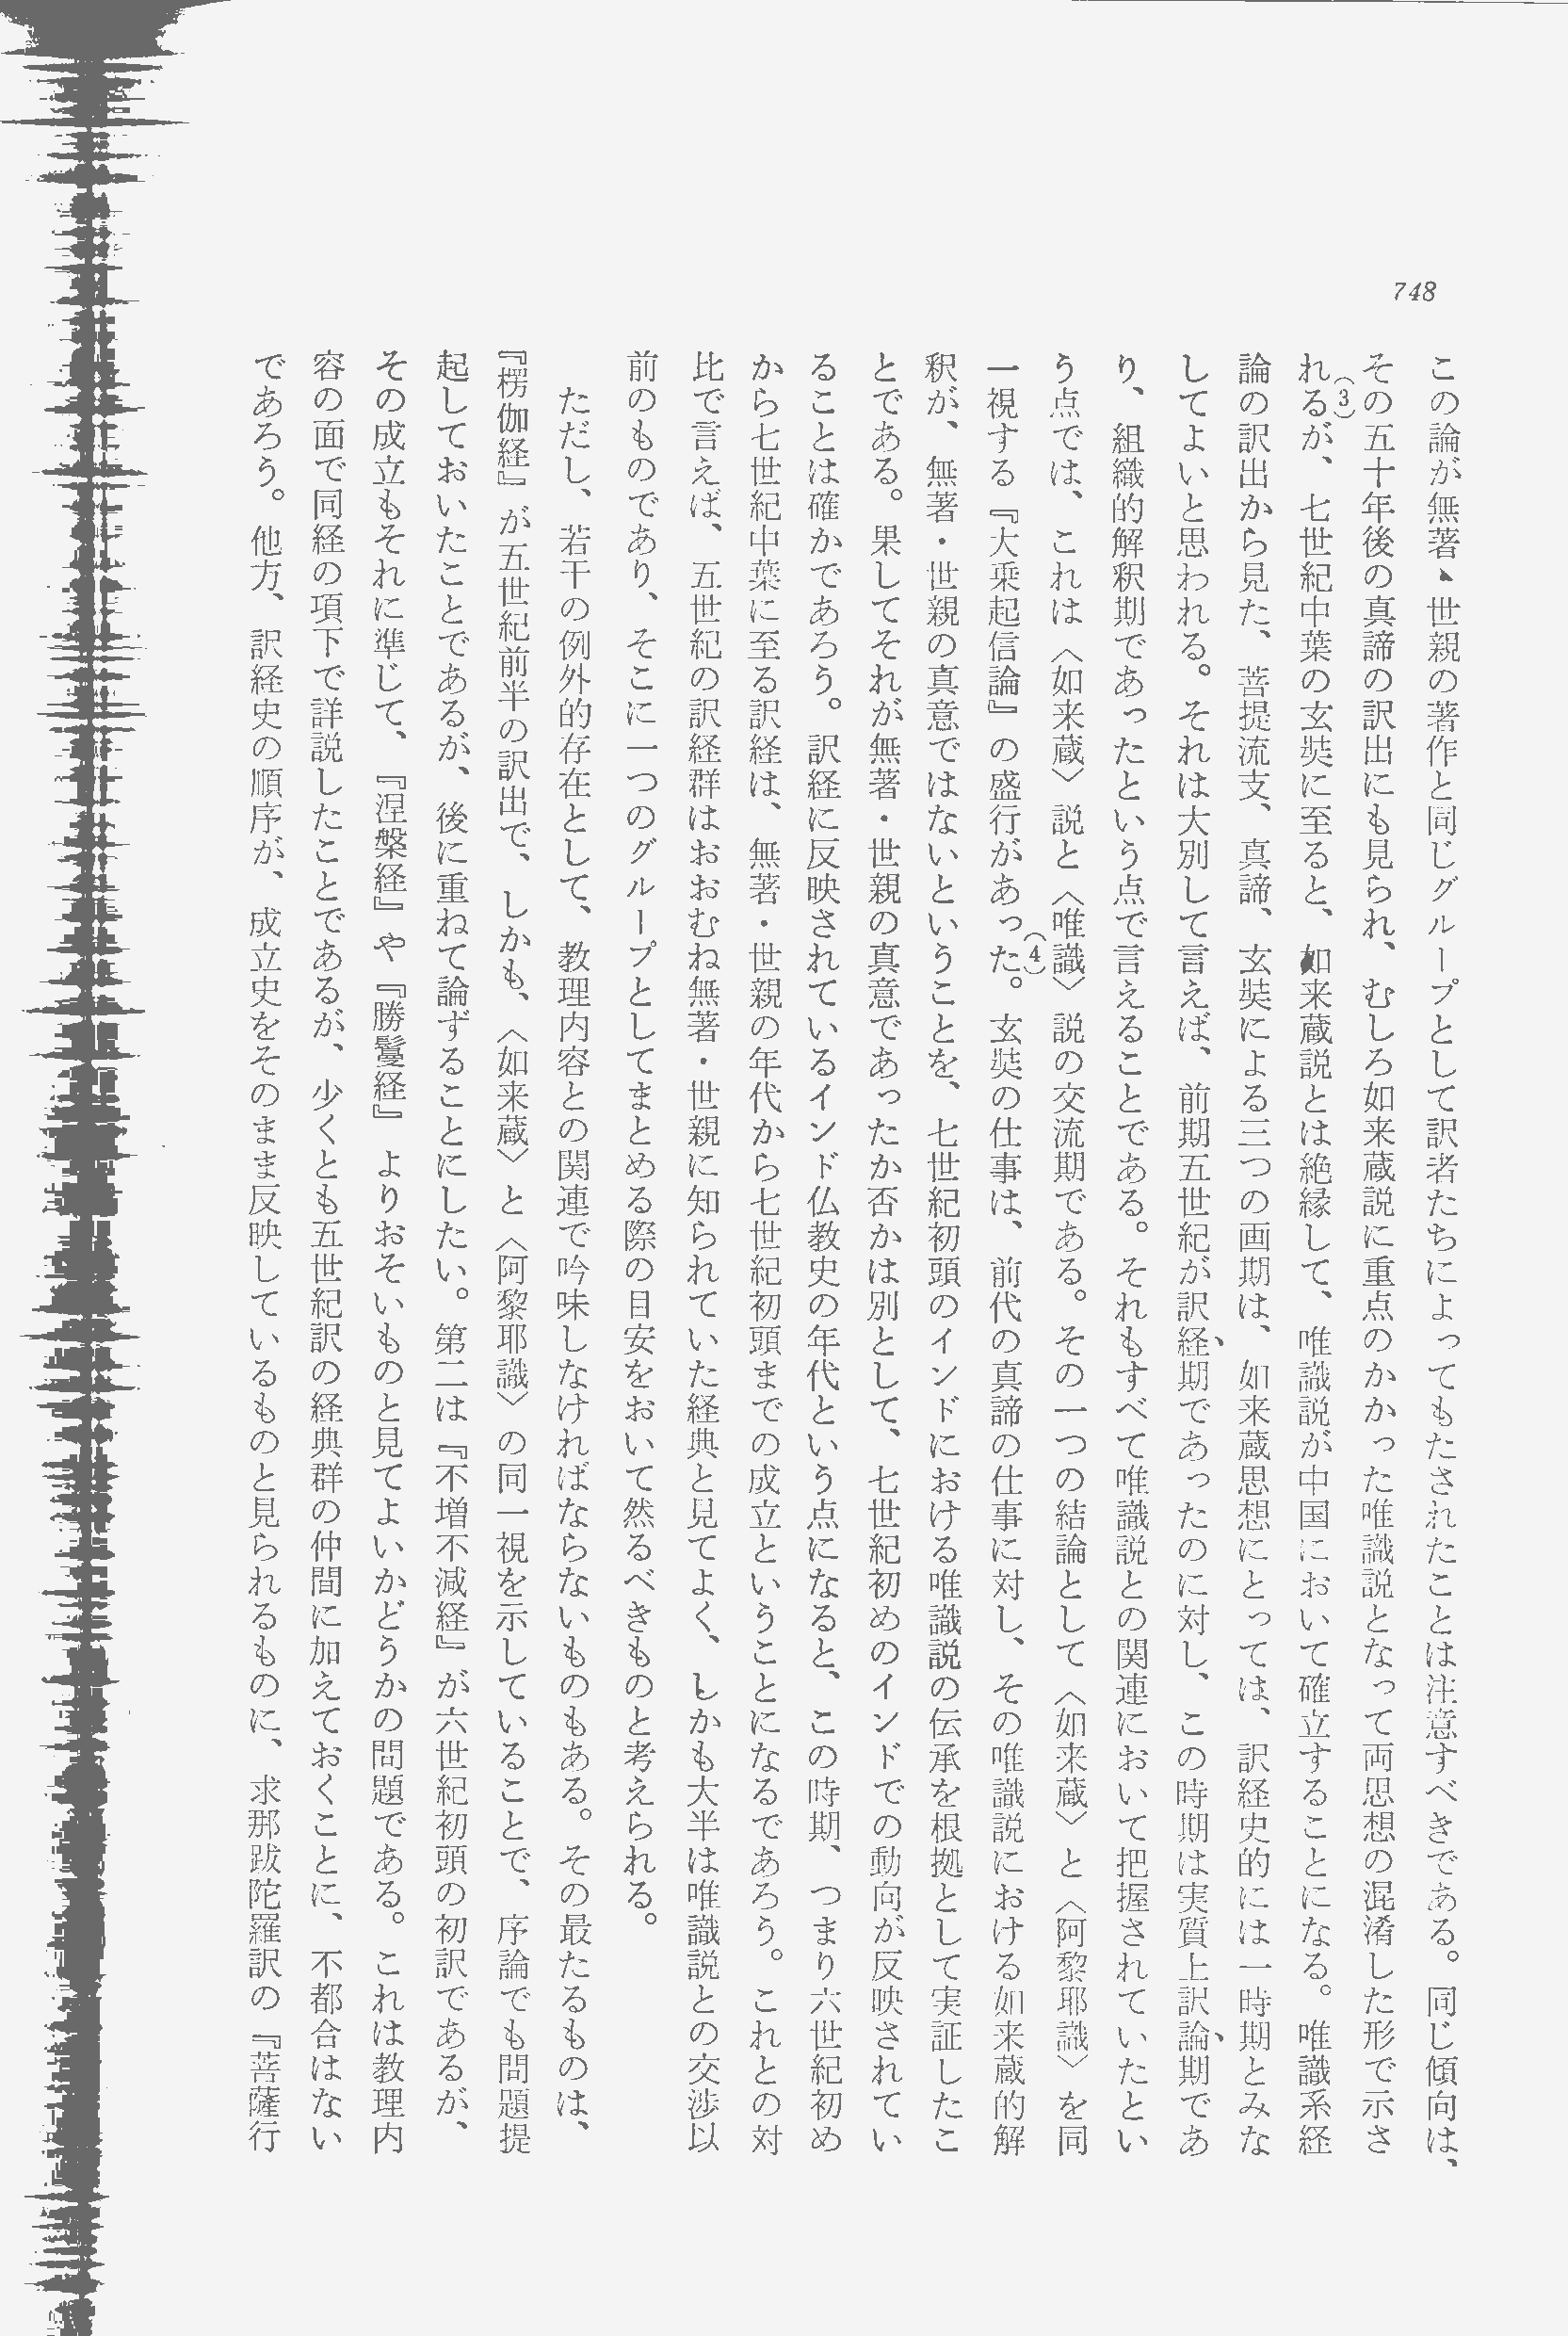 748
この論が無著・世親の著作と同じグループとして訳者たちによってもたされたことは注意すべきである。同じ傾向は、
その五十年後の真諦の訳出にも見られ、むしろ如来蔵説に重点のかかった唯識説となって両思想の混淆した形で示さ
れる(3)が、七世紀中葉の玄奘に至ると、如来蔵説とは絶縁して、唯識説が中国において確立することになる。唯識系経
論の訳出から見た、菩提流支、真諦、玄奘による三つの画期は、如来蔵思想にとっては、訳経史的には一時期とみな
してよいと思われる。それは大別して言えば、前期五世紀が訳経期であったのに対し、この時期は実質上訳論期であ
り、組織的解釈期であったという点で言えることである。それもすべて唯識説との関連において把握されていたとい
う点では、これは〈如来蔵〉説と〈唯識〉説の交流期である。その一つの結論として〈如来蔵〉と〈阿黎耶識〉を同
一視する『大乗起信論』の盛行があった(4)。玄奘の仕事は、前代の真諦の仕事に対し、その唯識説における如来蔵的解
釈が、無著・世親の真意ではないということを、七世紀初頭のインドにおける唯識説の伝承を根拠として実証したこ
とである。果してそれが無著・世親の真意であったか否かは別として、七世紀初めのインドでの動向が反映されてい
ることは確かであろう。訳経に反映されているインド仏教史の年代という点になると、この時期、つまり六世紀初め
から七世紀中葉に至る訳経は、無著・世親の年代から七世紀初頭までの成立ということになるであろう。これとの対
比で言えば、五世紀の訳経群はおおむね無著・世親に知られていた経典と見てよく、しかも大半は唯識説との交渉以
前のものであり、そこに一つのグループとしてまとめる際の目安をおいて然るべきものと考えられる。
ただし、若干の例外的存在として、教理内容との関連で吟味しなければならないものもある。その最たるものは、
『楞伽経』が五世紀前半の訳出で、しかも、〈如来蔵〉と〈阿黎耶識〉の同一視を示していることで、序論でも問題提
起しておいたことであるが、後に重ねて論ずることにしたい。第二は『不増不減経』が六世紀初頭の初訳であるが、
その成立もそれに準じて、『涅槃経』や『勝鬘経』よりおそいものと見てよいかどうかの問題である。これは教理内
容の面で同経の項下で詳説したことであるが、少くとも五世紀訳の経典群の仲間に加えておくことに、不都合はない
であろう。他方、訳経史の順序が、成立史をそのまま反映しているものと見られるものに、求那跋陀羅訳の『菩薩行